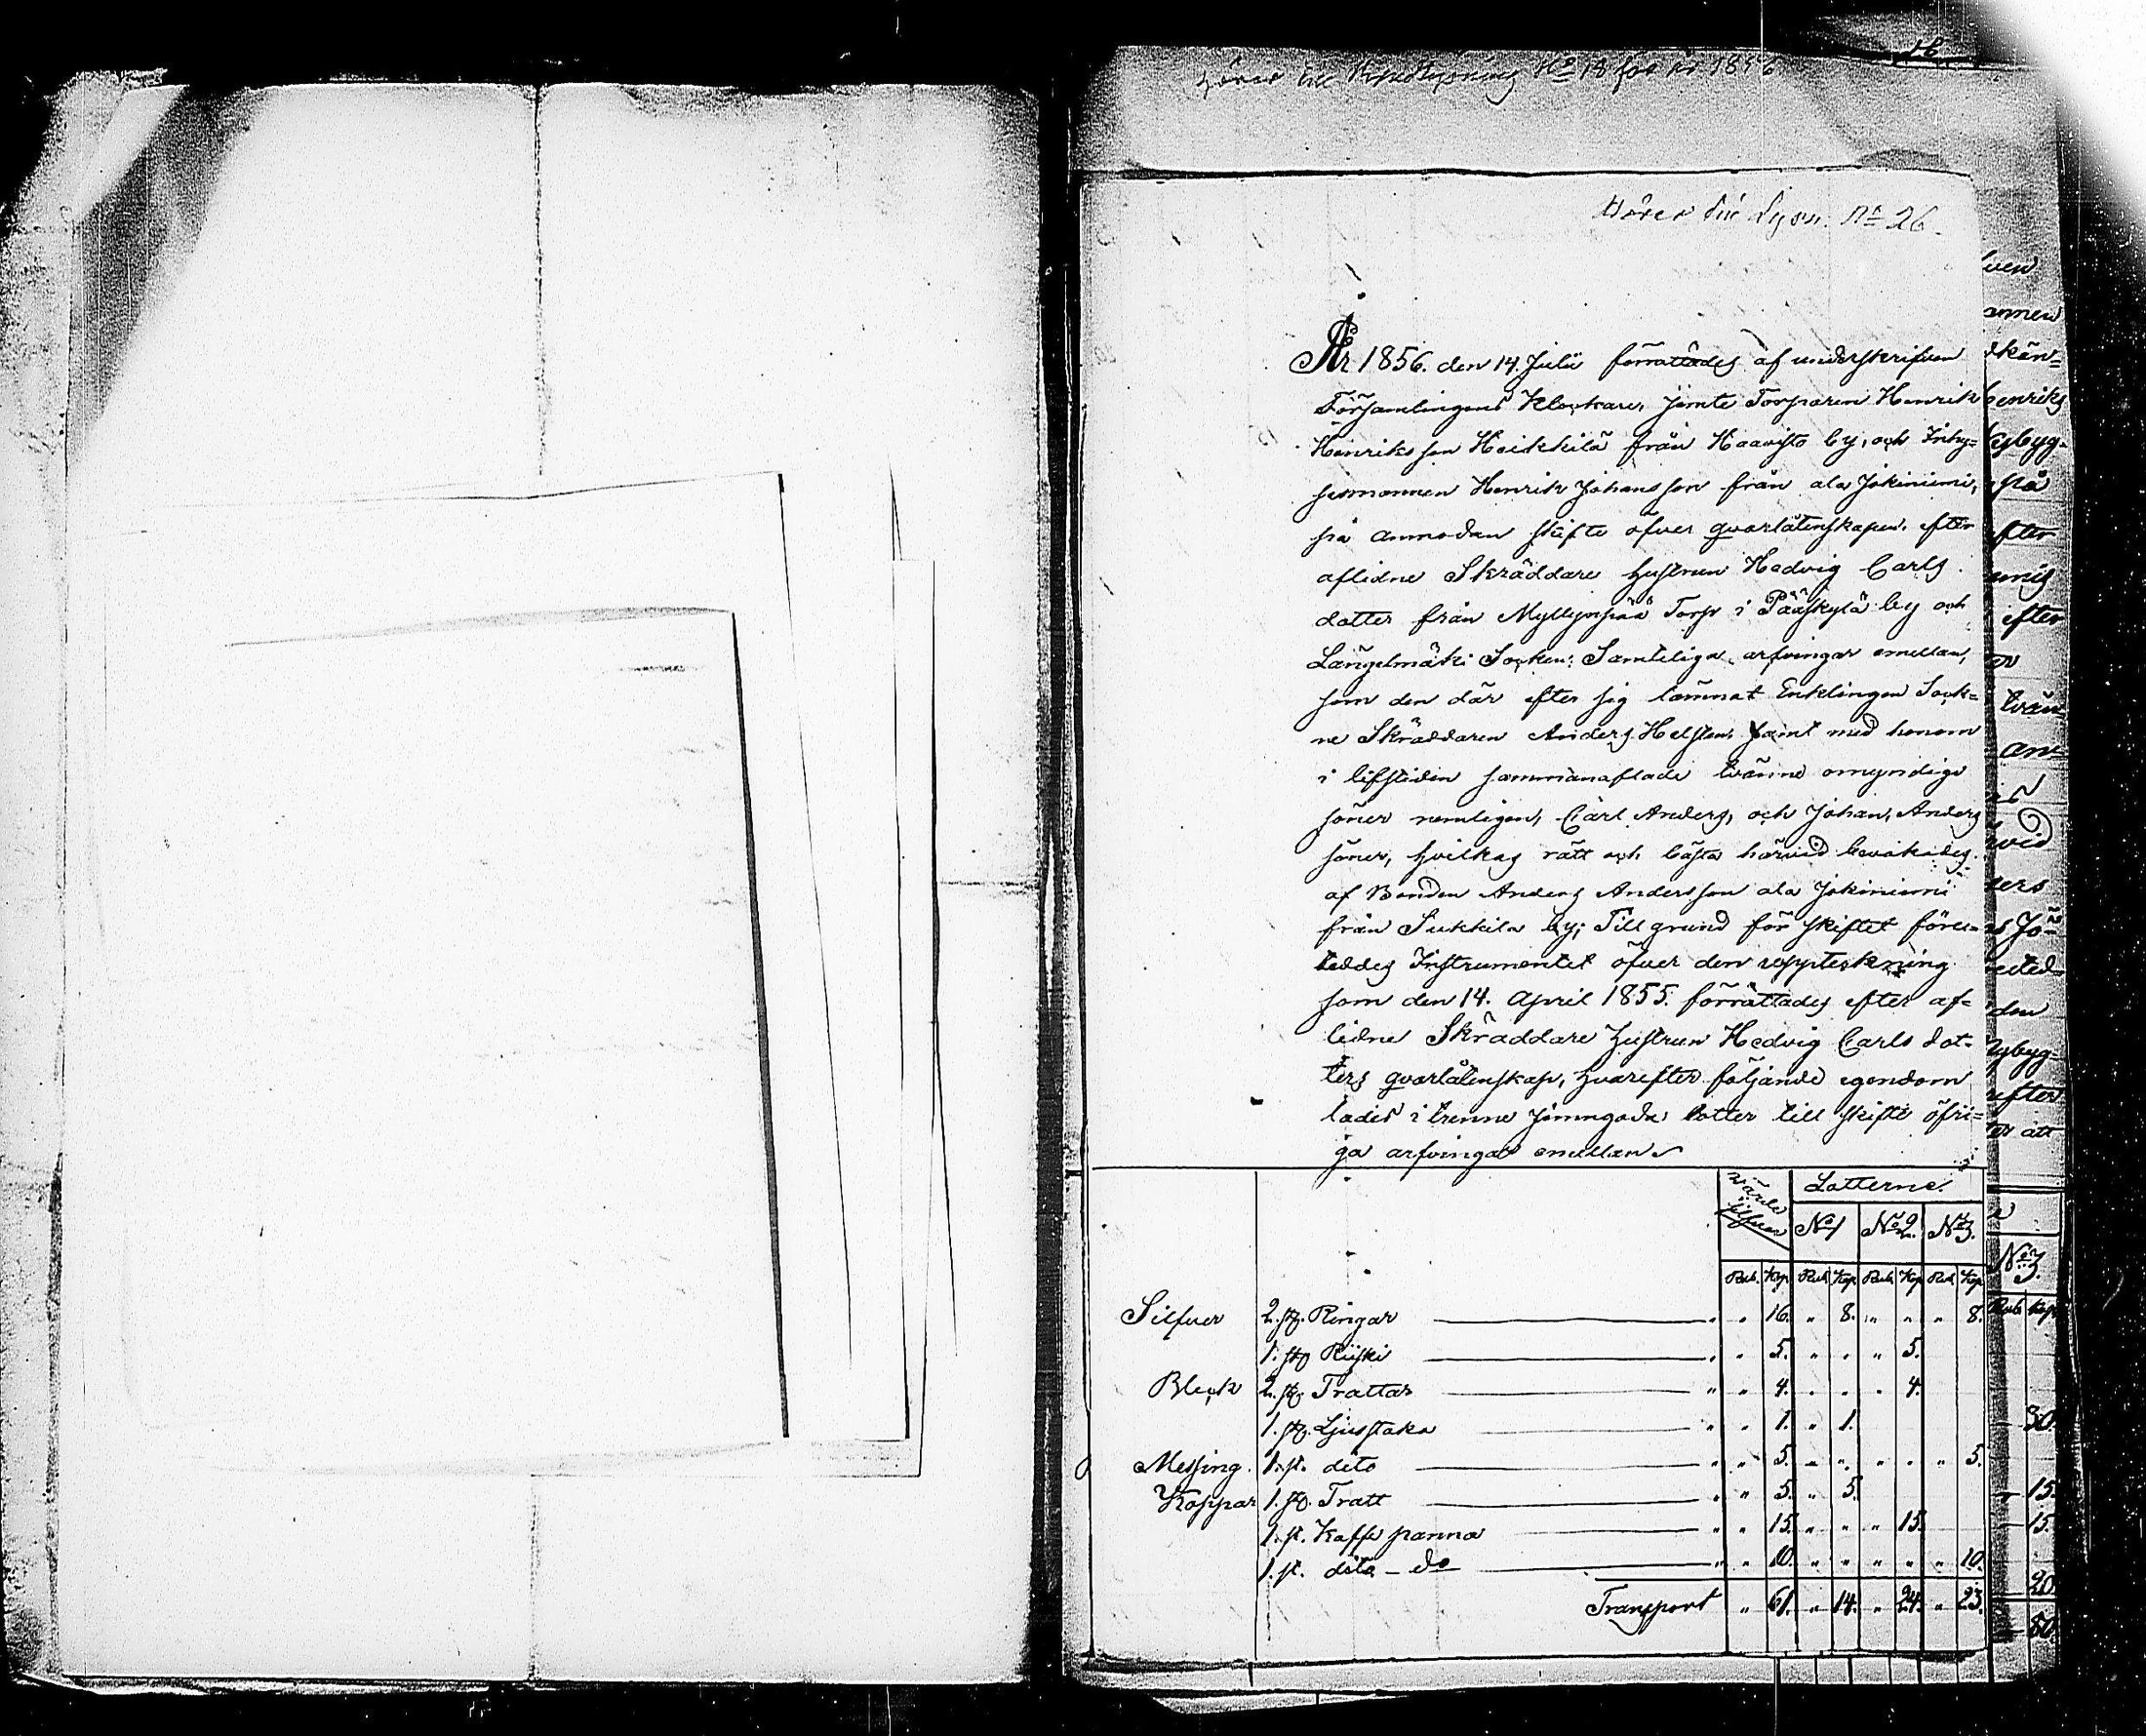 16
hörer till N:o 18 för år 1856
Hörer till Lysn. No 26.
År 1856. den 14. Julii förrättades af underskrifven
Församlingens Klockare, jemte Torparen Henrik
Henriksson Heikkilä från Haavisto by, och Inhy=
sesmannen Henrik Johansson från ala Jokiniemi,
på anmodan skifte öfver qvarlåtenskapen efter
aflidne Skräddare hustrun Hedvig Carls
dotter från Myllynpää Torp i Pääskylä by och
Längelmäki Socken; Samteliga arfvingar emellan,
som den där efter sig lemnat Enklingen Sock=
ne Skräddaren Anders Helsten, samt med honom
i lifstiden sammanaflade tvänne omyndige
söner nemligen, Carl Anders, och Johan, Anders
söner, hvilkas rätt och bästa härvid bevakades
af Bonden Anders Andersson ala Jokiniemi
från Sukkila by; Till grund för skiftet före=
teddes Instrumentet öfver den uppteckning
som den 14. April 1855. förrättades efter af=
lidne Skräddare hustrun Hedvig Carls dot=
ters qvarlåtenskap, hvarefter följande egendom
lades i trenne jemngoda lotter till skifte öfri=
ga arfvingar emellan
Värde silfver Lotterne.
No 1 No 2. No 3.
Rub. Kop. Rub. Kop. Rub. Kop. Rub. Kop.
Silfver 2. st. Ringar " " 16. " 8. " " " 8.
1. st. Riiski " " 5. " " " 5.
Bleck 2. st. Trattar " " 4. " " " 4.
1. st. Ljusstaka " " 1. " 1.
Messing. 1. st. dito " " 5. " " " " " 5.
Koppar 1. st. Tratt " " 5. " 5.
1. st. Kaffe panna " " 15. " " " 15.
1. st. dito - do " " 10. " " " " " 10.
Transport " 61. " 14. " 24. " 23.
efter
No 3.
Rub. Kop.
30.
15.
15.
20.
80.